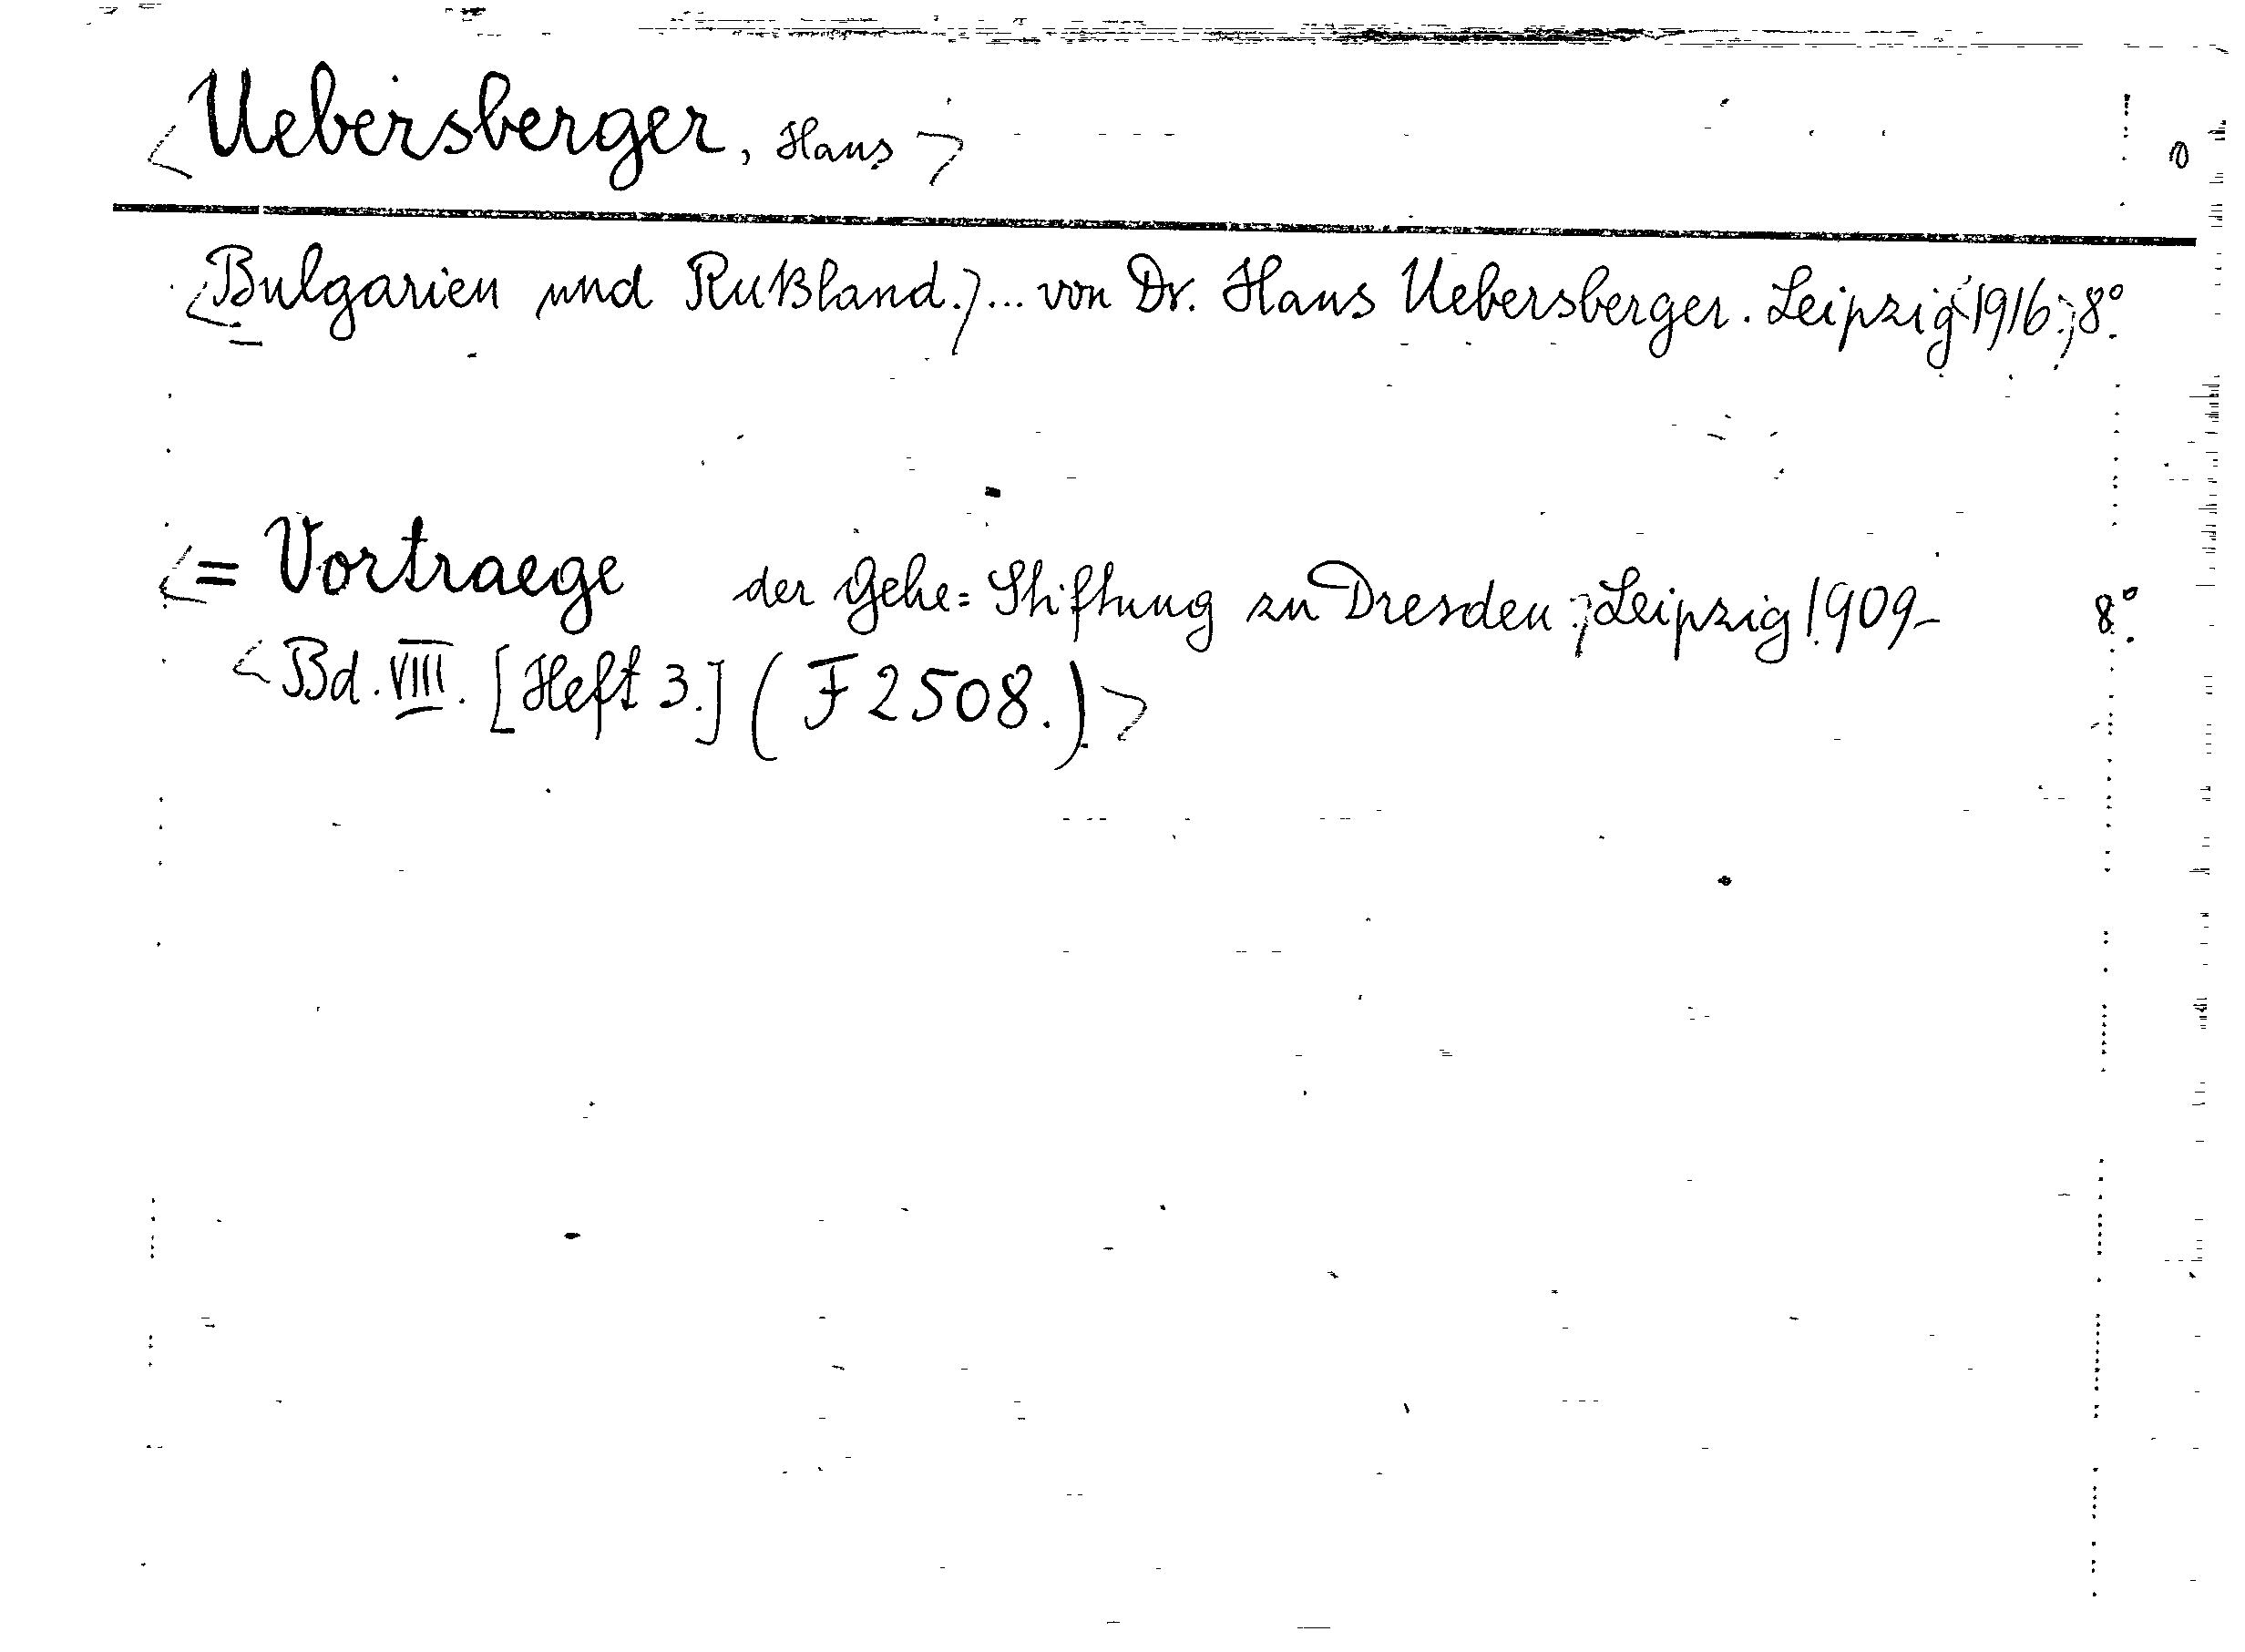 <Uebersberger, Hans> 0
<Bulgarien und Rußland.> ... von Dr. Hans Uebersberger. Leipzig <1916.> 8°.
<= Vortraege der Gehe=Stiftung zu Dresden.> Leipzig 1909- 8°.
<Bd. VIII. [Heft 3.] (F 2508.)>